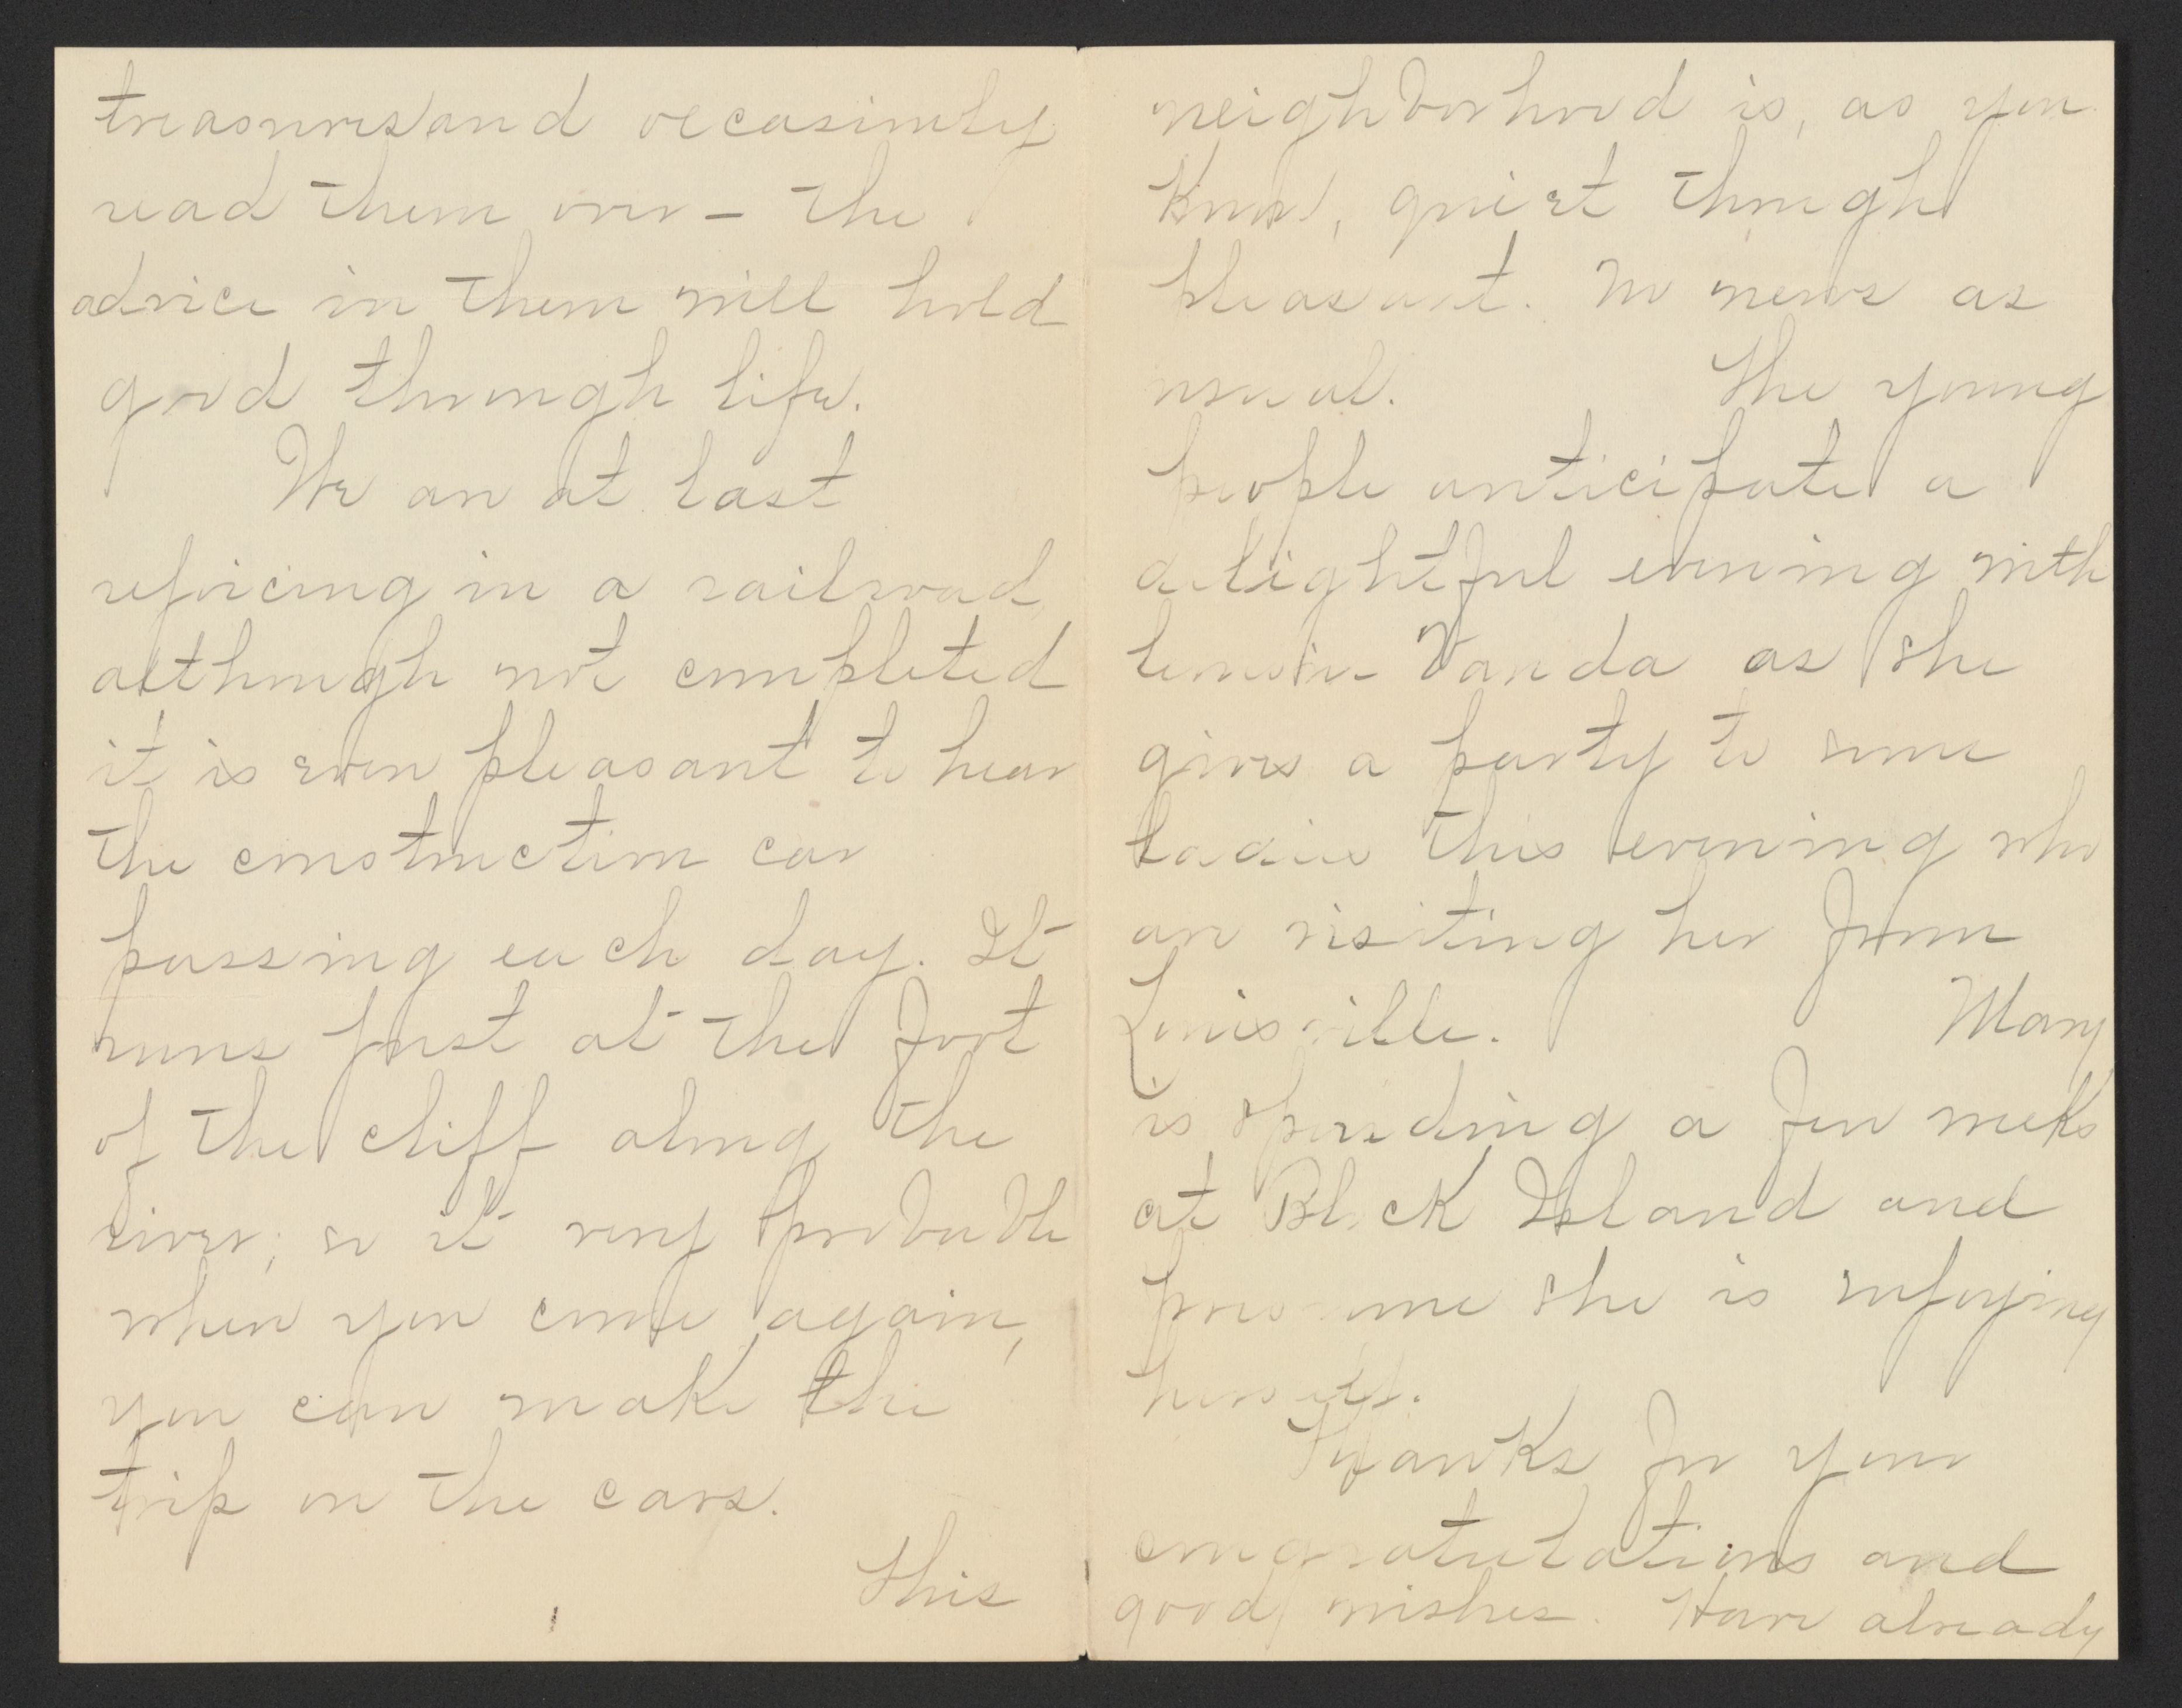 treasures and occasionly
read them over – the
advice in them will hold
good through life.
We are at last
rejoicing in a railroad,
although not completed
it is even pleasant to hear
the construction car
passing each day. It
runs just at the foot
of the cliff along the
river; so it very probable
when you come again,
you can make the
trip on the cars.
This
neighborhood is, as you
know, quiet though
pleasant. No news as
usual. The young
people anticipate a
delightful evening with
Vanda as she
gives a party to some
ladies this evening who
are visiting her from
Louisville. Mary
is spending a few weeks
at Block Island and
presume she is enjoying
herself.
Thanks for your
congratulations and
good wishes. Have already